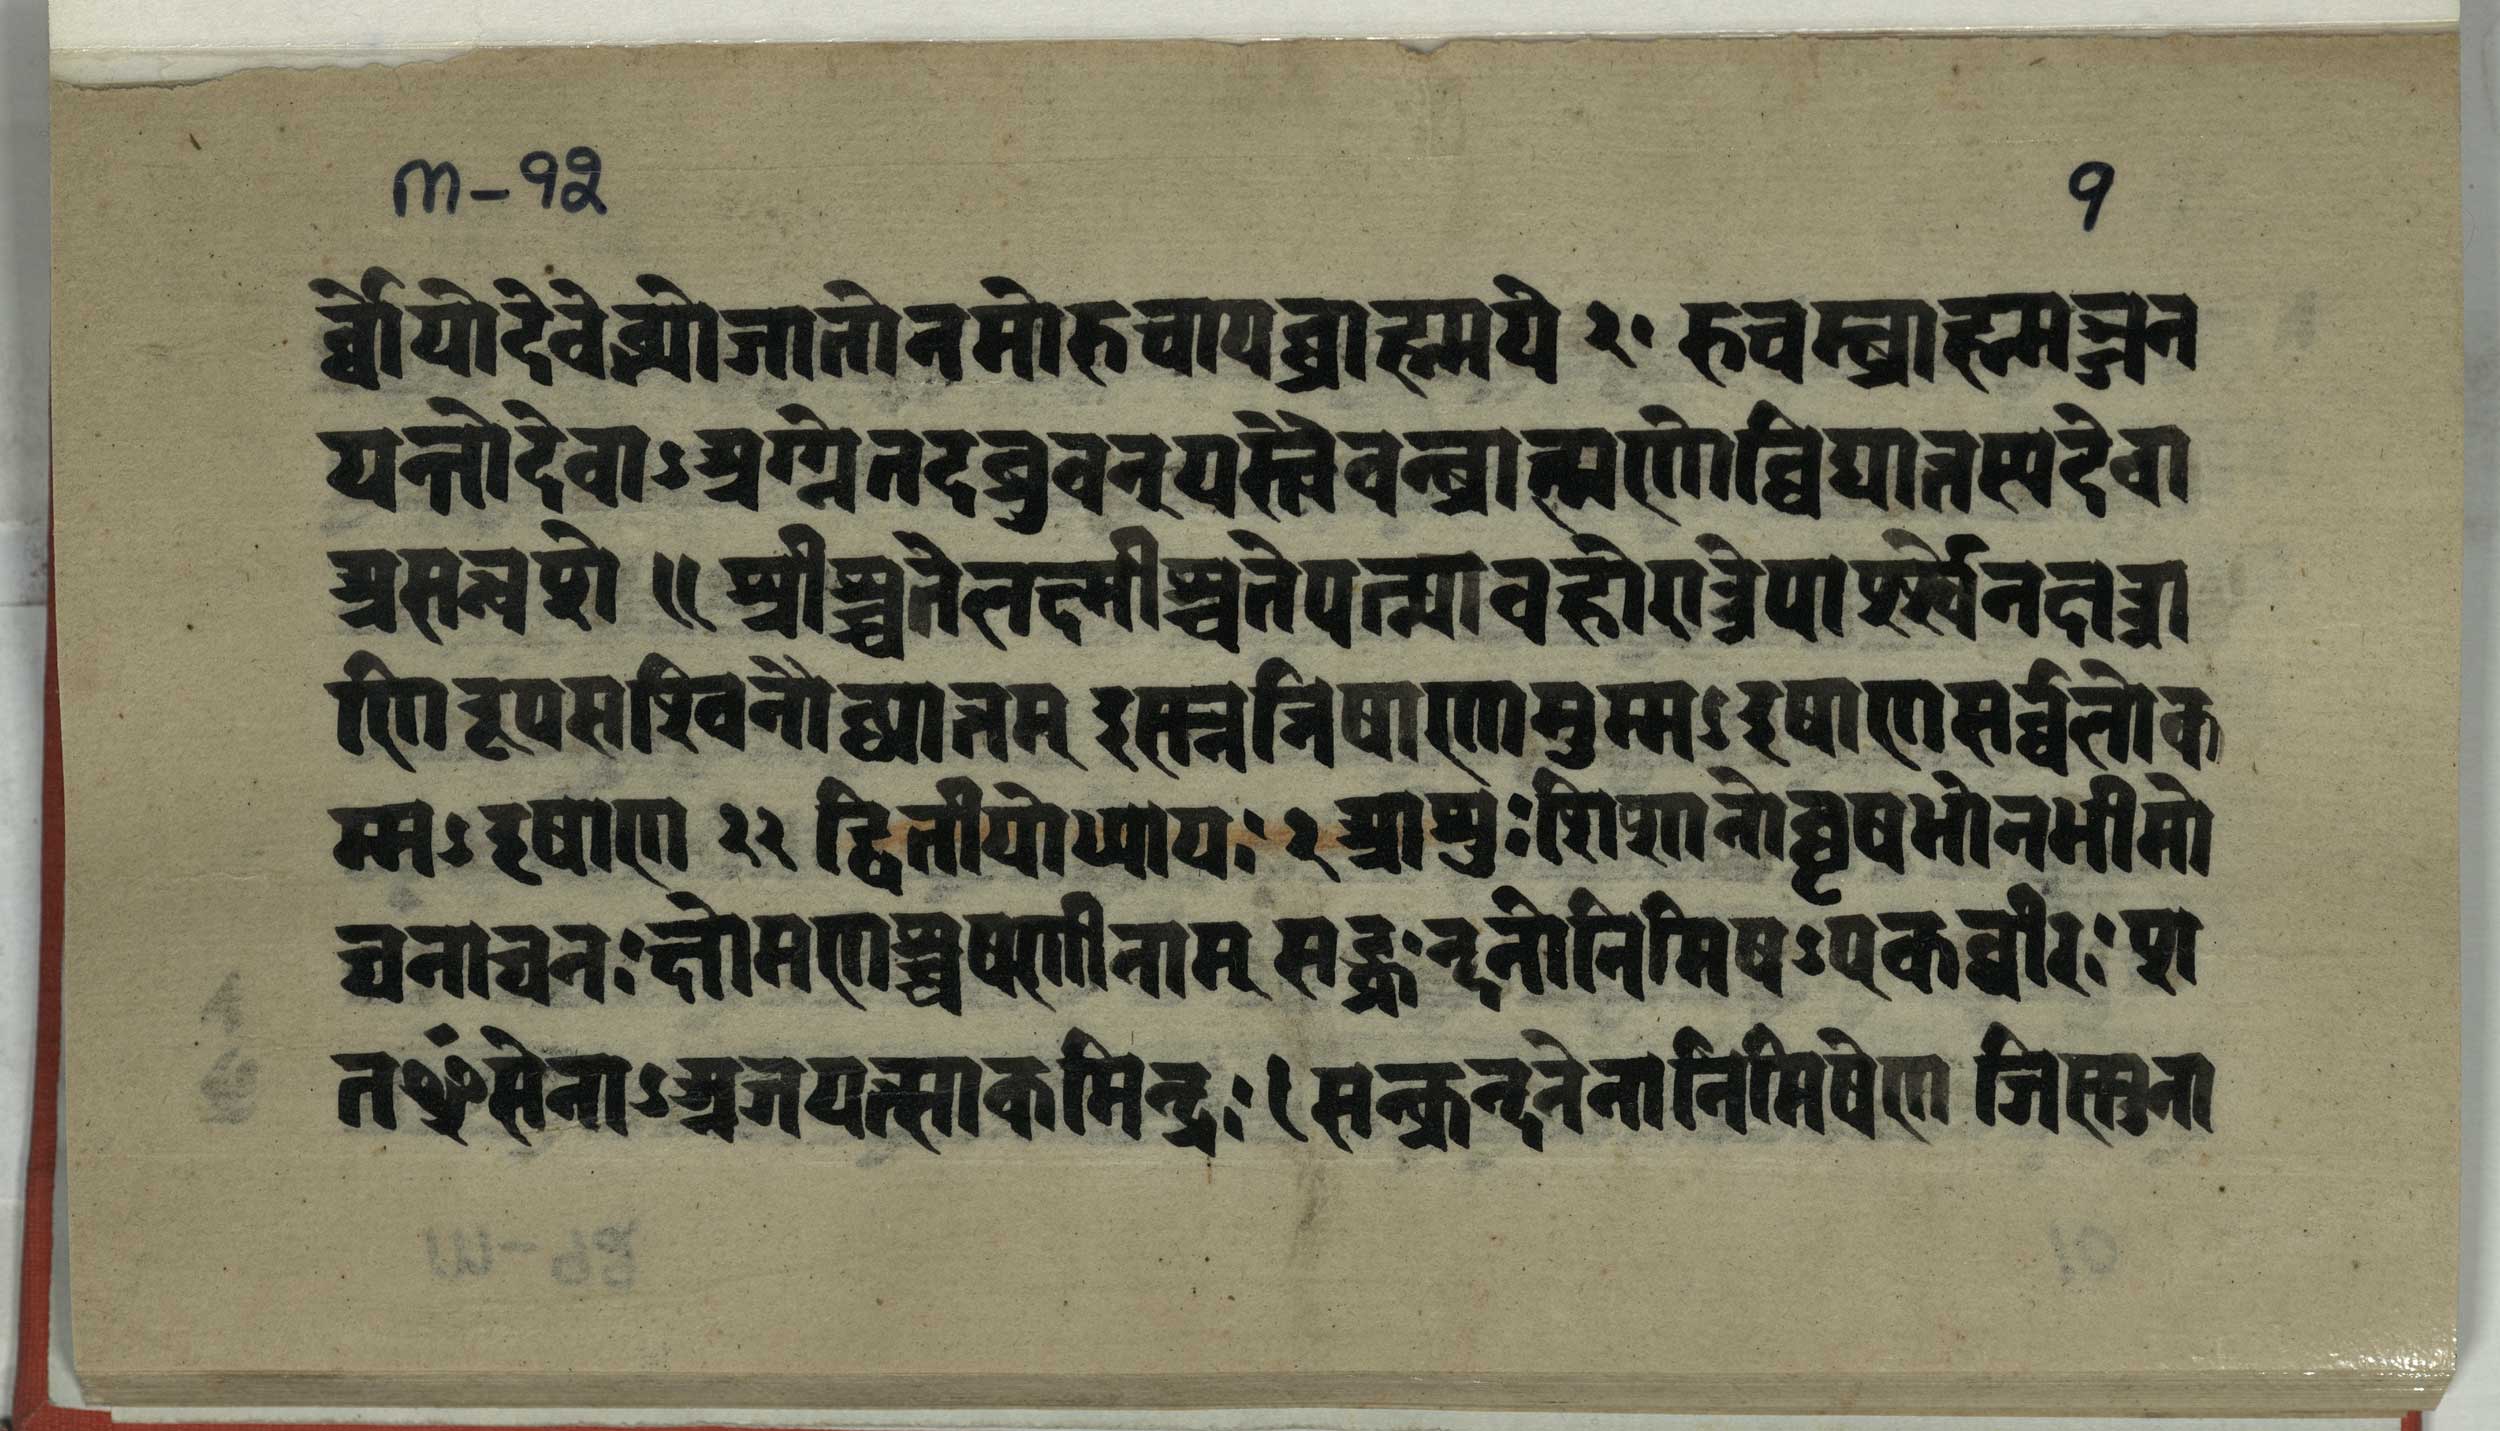 m-१२ १
र्ब्बोयोदेवेब्भ्योजातोनमोरुचायब्ब्राह्मये २० रुचम्ब्राह्मञ्जन
यन्तोदेवाऽअग्ग्रेतदब्ब्रुवन् यस्त्वैवम्ब्राह्मणोव्विद्यात्तस्यदेवा
असन्न्वशे ॥ श्रीश्च्चतेलक्ष्मीश्च्चतेपत्क्न्यावहोरात्त्रेपार्श्वेनक्षत्त्रा
णिरूपमश्विनौव्व्यात्तम् इष्सन्निषाणामुम्मऽइषाणसर्व्वलोक
म्मऽइषाण २२ द्वितीयोध्यायः २ आशुःशिशानोव्वृषभोनभीमो
घनाघनःक्षोभणश्च्चर्षणीनाम् सङ्क्रन्दनोनिमिषऽएकवीरः श
तᳪसेनाऽअजयत्साकमिन्द्रः १ सन्क्रन्दनेनानिमिषेण जिस्मुना